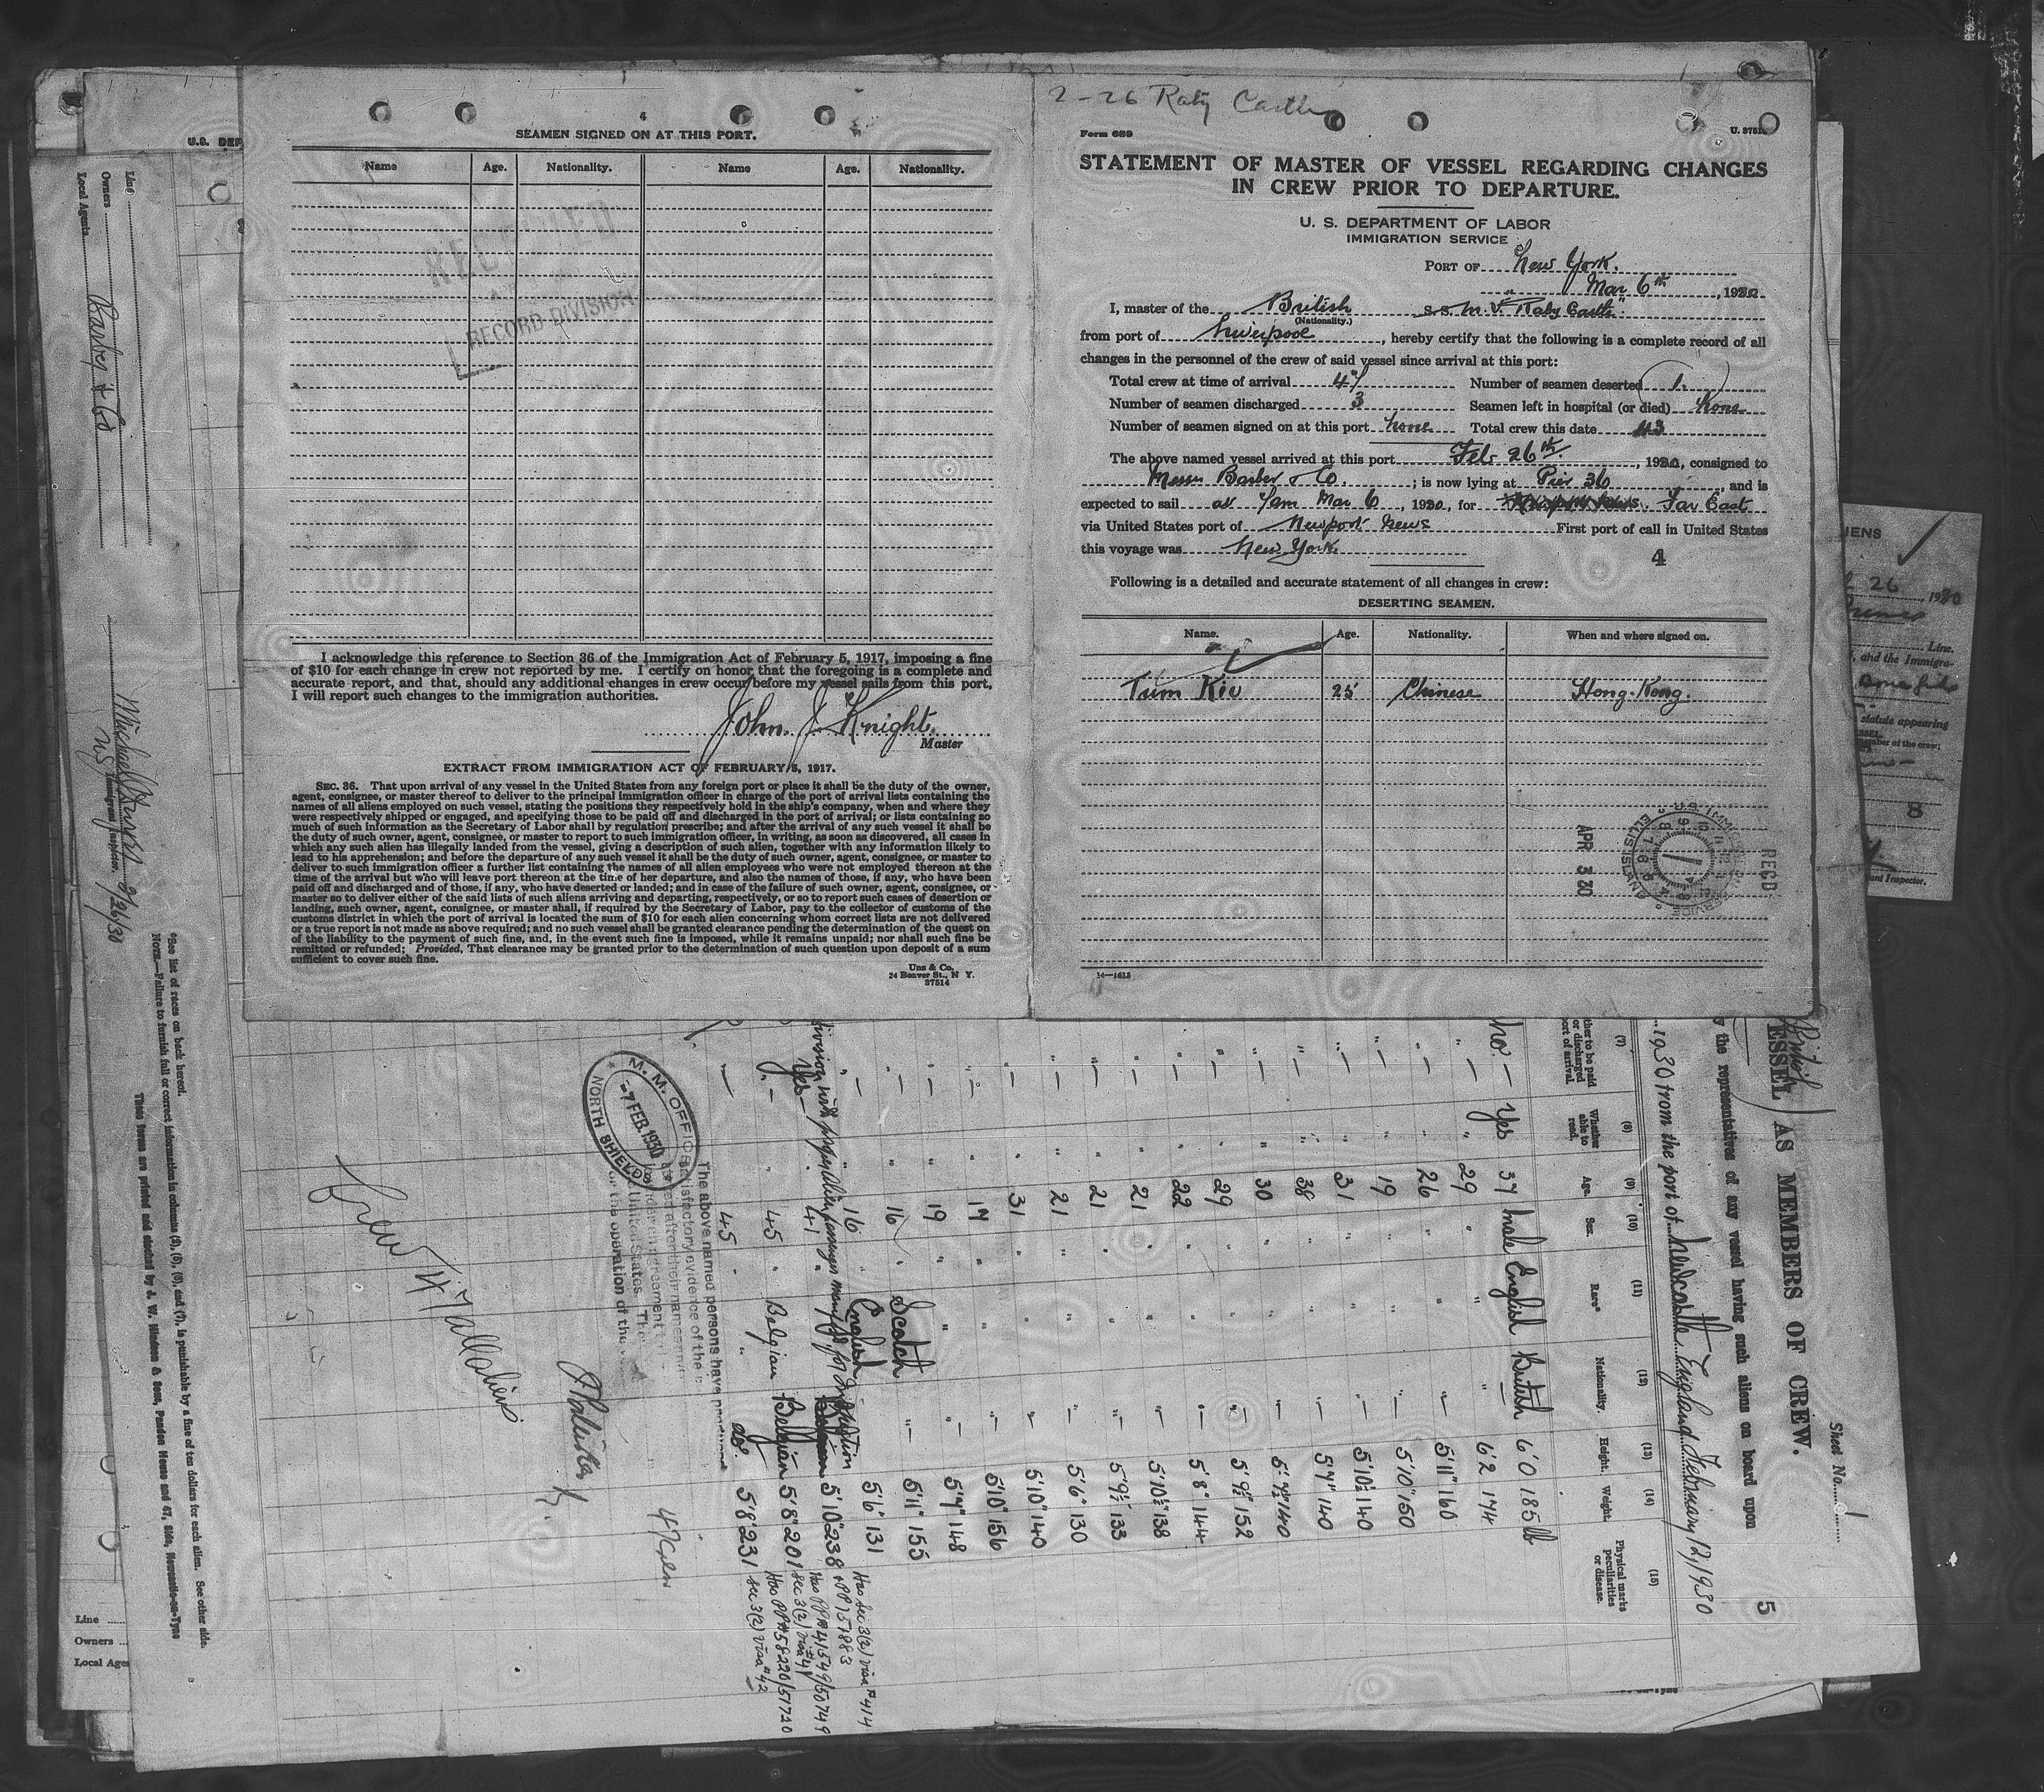 2-26 Raby Castle
SEAMEN SIGNED ON AT THIS PORT.
Name Age. Nationality. Name Age. Nationality.
RECEIVED
RECORD DIVISION
I acknowledge this reference to Section 36 of the Immigration Act of February 5, 1917, imposing a fine
of $10 for each change in crew not reported by me. I certify on honor that the foregoing is a complete and
accurate report, and that, should any additional changes in crew occur before my vessel sails from this port,
I will report such changes to the immigration authorities.
John. J. Knight.
Master
EXTRACT FROM IMMIGRATION ACT OF FEBRUARY 5, 1917.
SEC. 36. That upon arrival of any vessel in the United States from any foreign port or place it shall be the duty of the owner,
agent, consignee, or master thereof to deliver to the principal immigration officer in charge of the port of arrival lists containing the
names of all aliens employed on such vessel, stating the positions they respectively hold in the ship's company, when and where they
were respectively shipped or engaged, and specifying those to be paid off and discharged in the port of arrival; or lists containing so
much of such information as the Secretary of Labor shall by regulation prescribe; and after the arrival of any such vessel it shall be
the duty of such owner, agent, consignee, or master to report to such immigration officer, in writing, as soon as discovered, all cases in
which any such alien has illegally landed from the vessel, giving a description of such alien, together with any information likely to
lead to his apprehension; and before the departure of any such vessel it shall be the duty of such owner, agent, consignee, or master to
deliver to such immigration officer a further list containing the names of all alien employees who were not employed thereon at the
time of the arrival but who will leave port thereon at the time of her departure, and also the names of those, if any, who have been
paid off and discharged and of those, if any, who have deserted or landed; and in case of the failure of such owner, agent, consignee, or
master so to deliver either of the said lists of such aliens arriving and departing, respectively, or so to report such cases of desertion or
landing, such owner, agent, consignee, or master shall, if required by the Secretary of Labor, pay to the collector of customs of the
customs district in which the port of arrival is located the sum of $10 for each alien concerning whom correct lists are not delivered
or a true report is not made as above required; and no such vessel shall be granted clearance pending the determination of the quest on
of the liability to the payment of such fine, and, in the event such fine is imposed, while it remains unpaid; nor shall such fine be
remitted or refunded; Provided, That clearance may be granted prior to the determination of such question upon deposit of a sum
sufficient to cover such fine.
Uns & Co.
24 Beaver St., N Y.
37514
Form 689
STATEMENT OF MASTER OF VESSEL REGARDING CHANGES
IN CREW PRIOR TO DEPARTURE.
U. S. DEPARTMENT OF LABOR
IMMIGRATION SERVICE
PORT OF New York.
Mar 6th, 1930
I, master of the British S.S. M.V. "Raby Castle"
(Nationality.)
from port of Liverpool, hereby certify that the following is a complete record of all
changes in the personnel of the crew of said vessel since arrival at this port:
Total crew at time of arrival 47 Number of seamen deserted 1.
Number of seamen discharged 3 Seamen left in hospital (or died) None
Number of seamen signed on at this port None Total crew this date 43
The above named vessel arrived at this port Feb 26th., 1930, consigned to
Messrs Barber & Co.; is now lying at Pier 36, and is
expected to sail at 7am Mar 6, 1930, for Far East
via United States port of Newport News First port of call in United States
this voyage was New York
4
Following is a detailed and accurate statement of all changes in crew:
DESERTING SEAMEN.
Name. Age. Nationality. When and where signed on.
Tum Kiu 25 Chinese Hong-Kong.
RECD
APR 3 30
ELLIS ISLAND
14-1613
U.S. DEP
Line
Owners
Local Agents
Barber & Co
Immigrant Inspector.
2/26/30
*See list of races on back hereof.
NOTE.—Failure to furnish full or correct information in columns (3), (5), (6), and (7), is punishable by a fine of ten dollars for each alien. See other side.
These forms are printed and stocked by J. W. Hindson & Sons, Pandon House and 47, Side, Newcastle-on-Tyne
Line
Owners
Local Agen
Sheet No. 1
British
ESSEL AS MEMBERS OF CREW.
5
the representatives of any vessel having such aliens on board upon
1930 from the port of Newcastle England February 12, 1930
(7) (8) (9) (10) (11) (12) (13) (14) (15)
Whether able to read. Age. Sex. Race* Nationality. Height. Weight. Physical marks peculiarities or disease.
no. — Yes 37 male English British 6'0 185 lb
" — " 29 " " " 6'2 174
" — " 26 " " — 5'11" 160
" — " 19 " " — 5'10" 150
" — " 31 " " — 5'10½ 140
" — " 38 " " — 5'7" 140
" — " 30 " " — 5'7½" 140
" — " 29 " " — 5'9½" 152
" — " 22 " " — 5'8" 144
" — " 21 " " — 5'10½" 138
" — " 21 " " — 5'9½" 133
" — " 21 " " — 5'6" 130
" — " 31 " " — 5'10" 140
" — " 17 " " — 5'10" 156
" — " 19 " " — 5'7" 148
" — " 16 " Scotch — 5'11" 155
" — " 16 " English 5'6" 131
Yes — 41 " 5'10" 238
" — " 45 " Belgian Belgian 5'8" 201
— 45 " " do. 5'8" 231
Has Sec 3(2) visa #414
Sec 3(2) visa #42
The above named persons have produced
satisfactory evidence of the
M. M. OFFICE
-7 FEB. 1930
NORTH SHIELDS
Crew 17
4
IENS
26, 1930
Line.
, and the Immigra-
Bona fide
statute appearing
member of the crew;
8
Inspector.